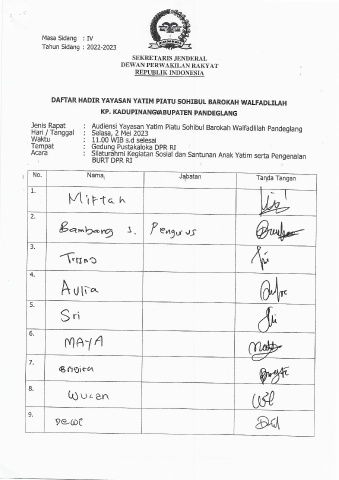 Masa Sidang : IV
Tahun Sidang : 2022-2023
SEKRETARIS JENDERAL
DEWAN PERWAKILAN RAKYAT
REPUBLIK INDONESIA
DAFTAR HADIR YAYASAN YATIM PIATU SOHIBUL BAROKAH WALFADLILAH
KP. KADUPINANGWABUPATEN PANDEGLANG
Jenis Rapat : Audiensi Yayasan Yatim Piatu Sohibul Barokah Walfadlilah Pandeglang
Hari / Tanggal : Selasa, 2 Mei 2023
Waktu : 11.00 WIB s.d selesai
Tempat : Gedung Pustakaloka DPR RI
Acara : Silaturahmi Kegiatan Sosial dan Santunan Anak Yatim serta Pengenalan
BURT DPR RI
No. Nama Jabatan Tanda Tangan
1. Miftah
2. Bambang S. Pengurus
3. Trisno
4. Aulia
5. Sri
6. MAYA
7.
8. Wulan
9. Dewi